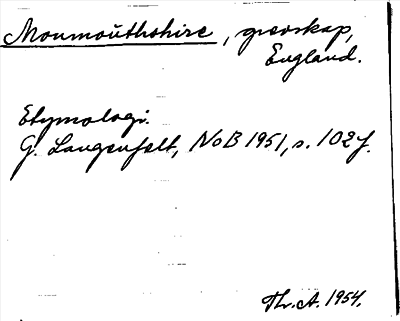 Monmouthshire, grevskap,
England.
Etymologi.
G. Langenfelt, NoB 1951, s. 102 f.
Th. A. 1954.